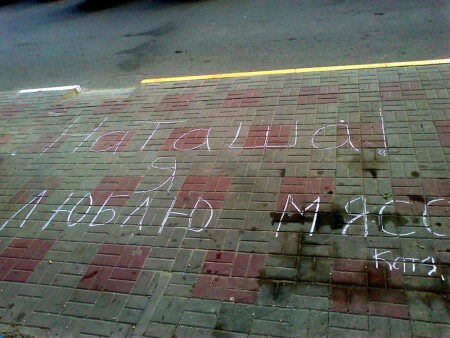 Наташа!
Я
ЛЮБЛЮ МЯСО
Котэ